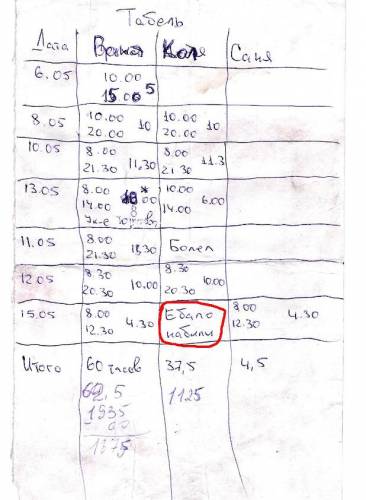 Табель
Дата Коля Саня
6.05 10.00
15.00 5
8.05 10.00 10.00
20.00 10 20.00 10
10.05 8.00 8.00
21.30 11,30 21.30 11.3
13.05 8.00 10.00
14.00 14.00 6.00
11.05 8.00 Болел
21.30
12.05 8.30 8.30
20.30 10.00 20.30 10.00
15.05 8.00 Ебало 8.00
12.30 4.30 набили 12.30 4.30
Итого 60 часов 37,5 4,5
62,5 1125
1935
1875